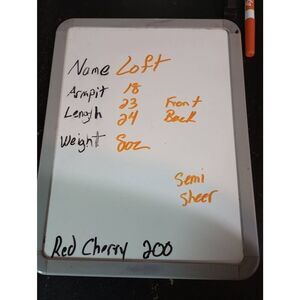 Name Loft
Armpit 18
Length 23 Front
24 Back
Weight 8oz
Semi
Sheer
Red Cherry 200